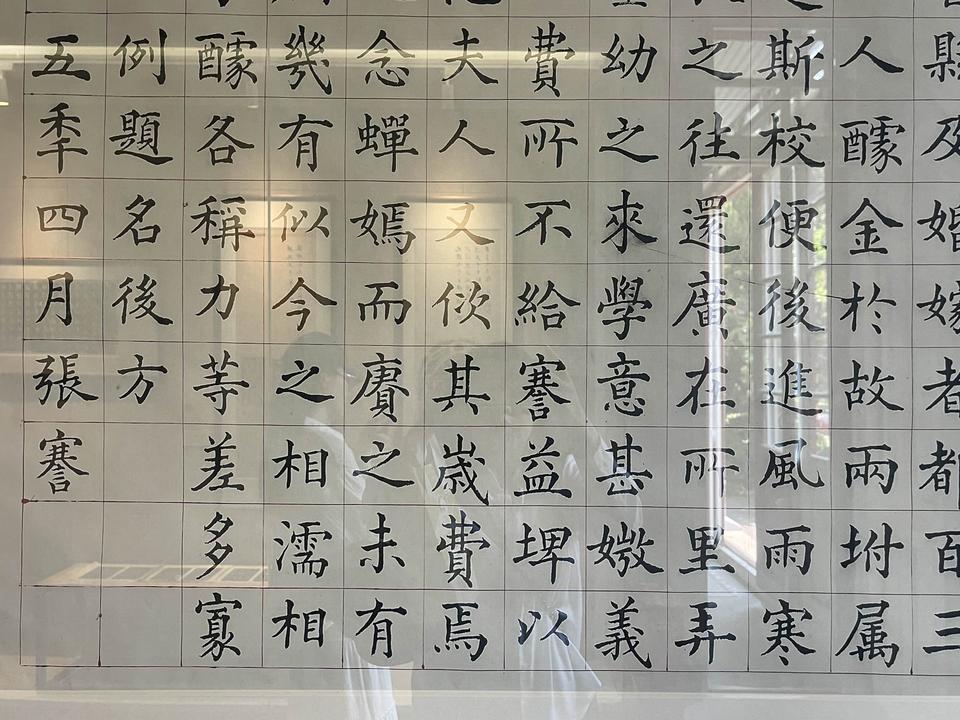 縣及婚嫁者都百三
人醵金於故兩坿属
斯校便後進風雨寒
之往還廣在所里弄
幼之來學意甚媺義
費所不給謇益埤以
夫人又佽其歲費焉
念蟬嫣而賡之未有
幾有似今之相濡相
醵各稱力等差多寡
例題名後方
五秊四月張謇